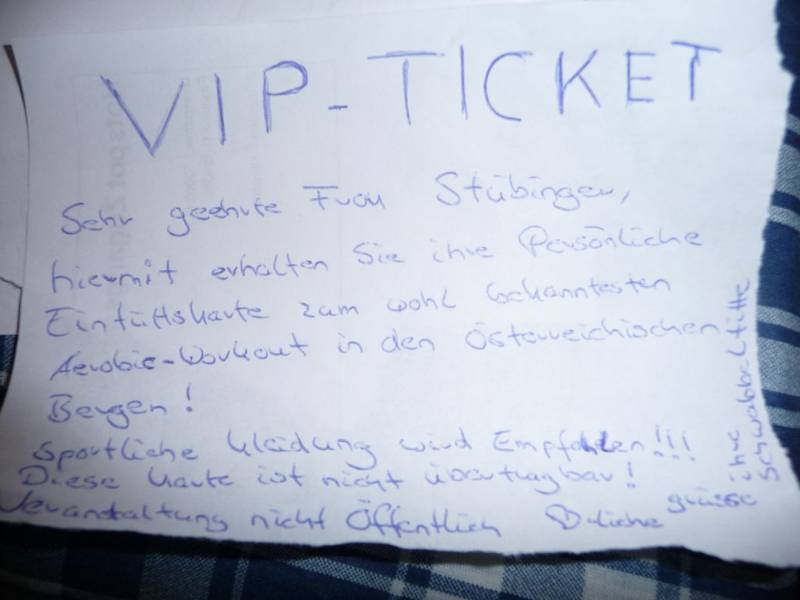 VIP-TICKET
Sehr geehrte Frau Stübinger,
hiermit erhalten Sie ihre Persönliche
Eintüttskarte zum wohl bekanntesten
Aerobic-Workout in den Österreichischen
Bergen!
Sportliche Kleidung wird Empfohlen!!!
Diese Karte ist nicht übertragbar!
Veranstaltung nicht Öffentlich ♡-liche grüsse
ihre
Schwabbeltitte